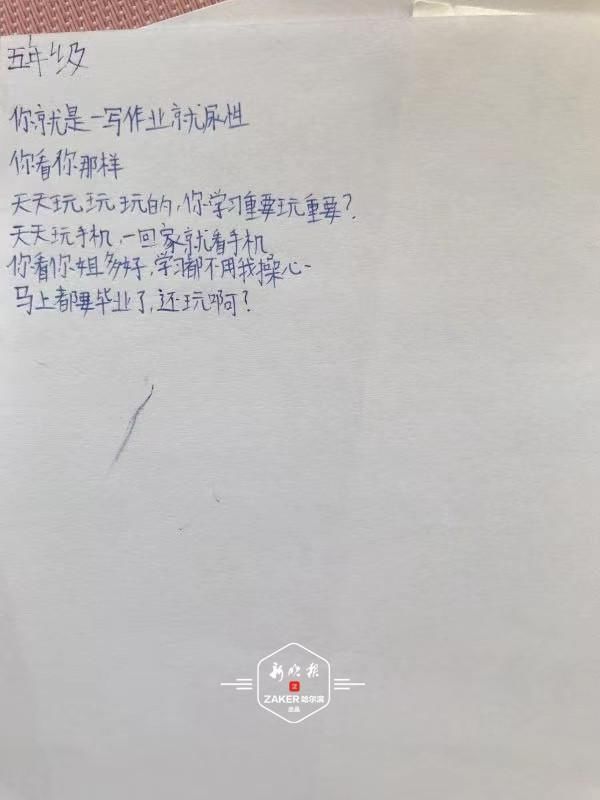 五年级
你就是一写作业就尿性
你看你那样
天天玩玩玩的,你学习重要玩重要?
天天玩手机,一回家就看手机
你看你姐多好,学习都不用我操心
马上都要毕业了,还玩啊?
新晚报
ZAKER哈尔滨
出品